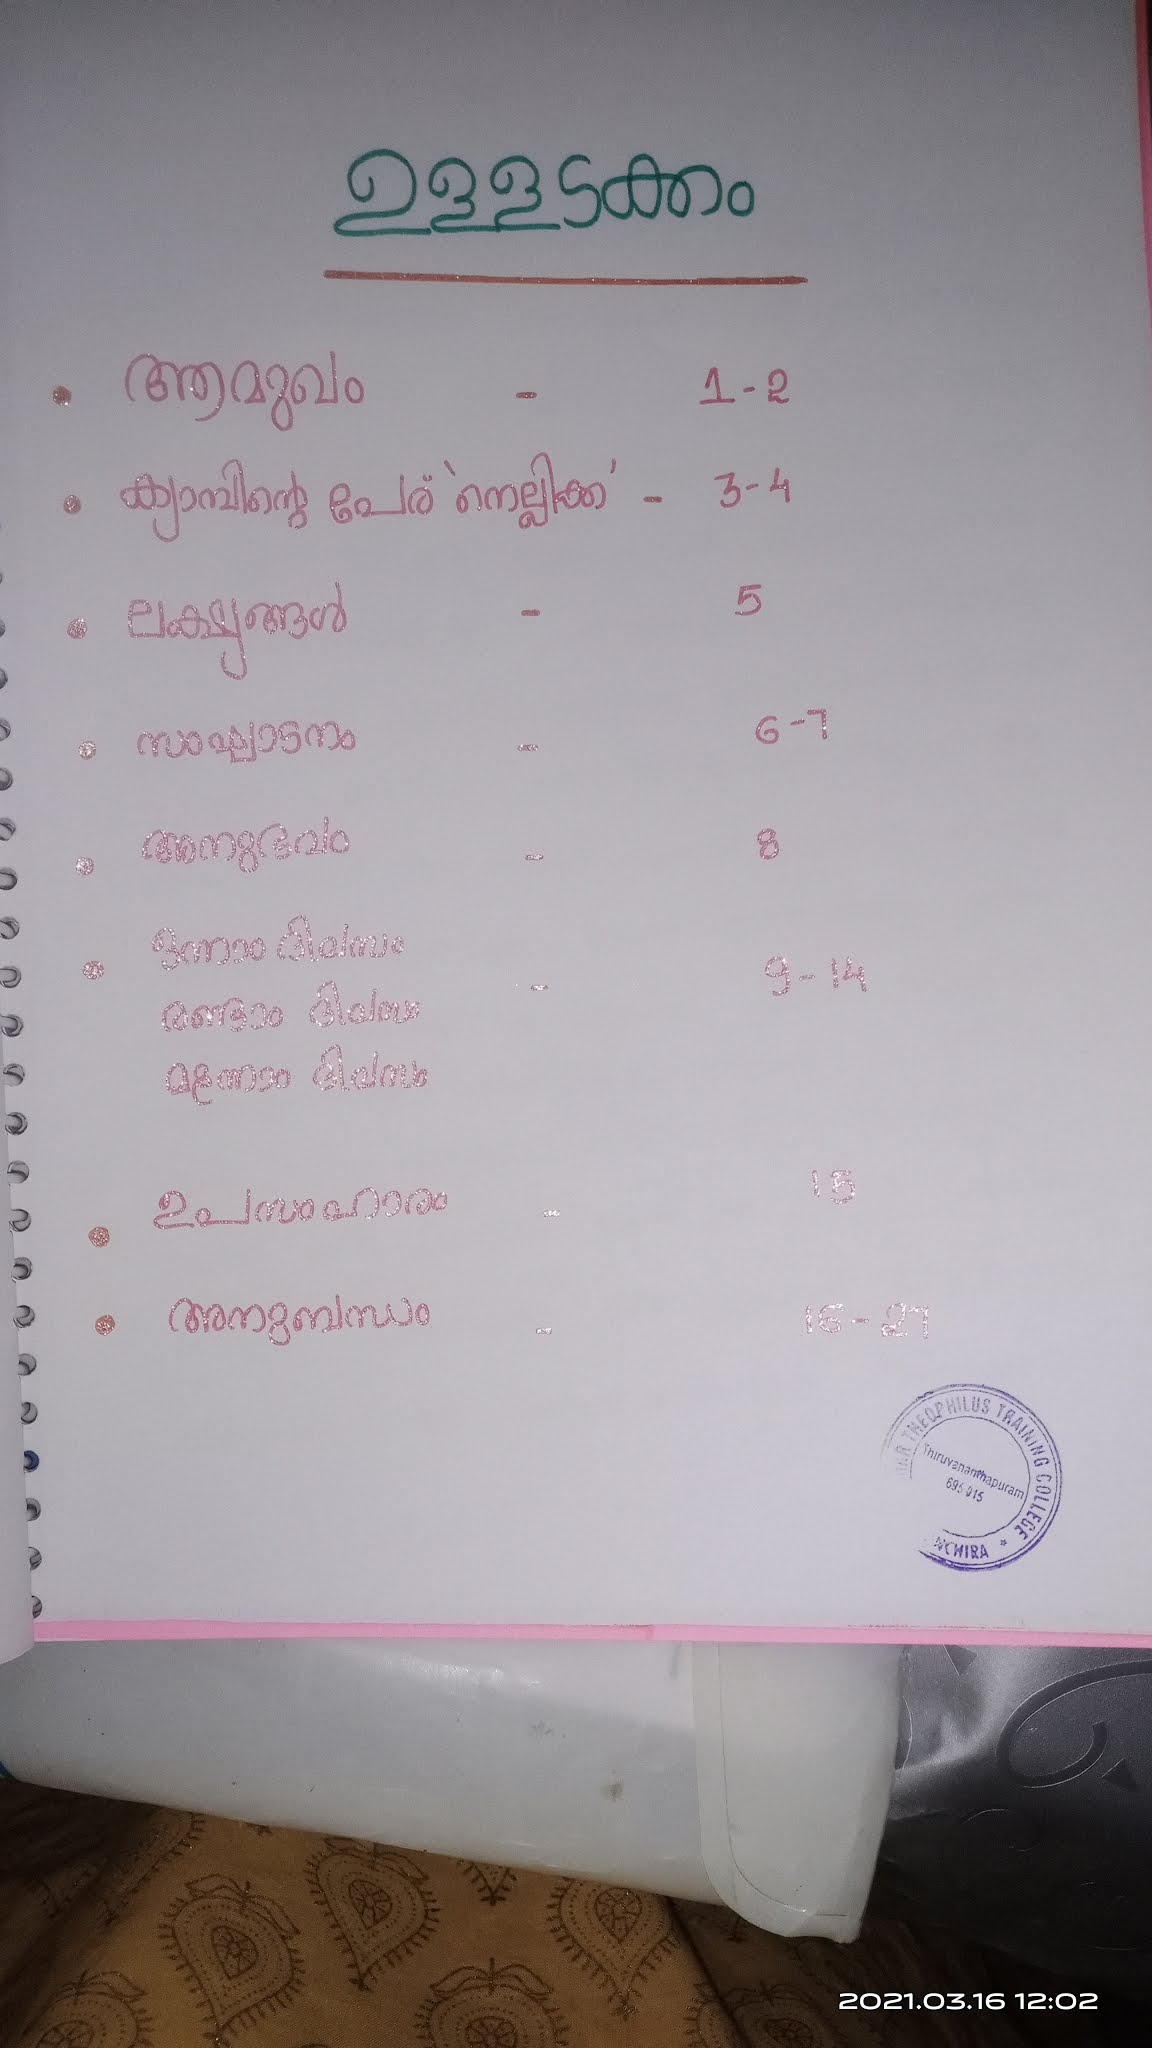 ഉള്ളടക്കം
• ആമുഖം - 1-2
• ക്യാമ്പിന്റെ പേര് 'നെല്ലിക്ക' - 3-4
• ലക്ഷ്യങ്ങൾ - 5
• സംഘാടനം - 6-7
• അനുഭവം - 8
• ഒന്നാം ദിവസം
രണ്ടാം ദിവസം - 9-14
മൂന്നാം ദിവസം
• ഉപസംഹാരം - 15
• അനുബന്ധം - 16-27
THEOPHILUS TRAINING COLLEGE
Thiruvananthapuram
695 015
2021.03.16 12:02